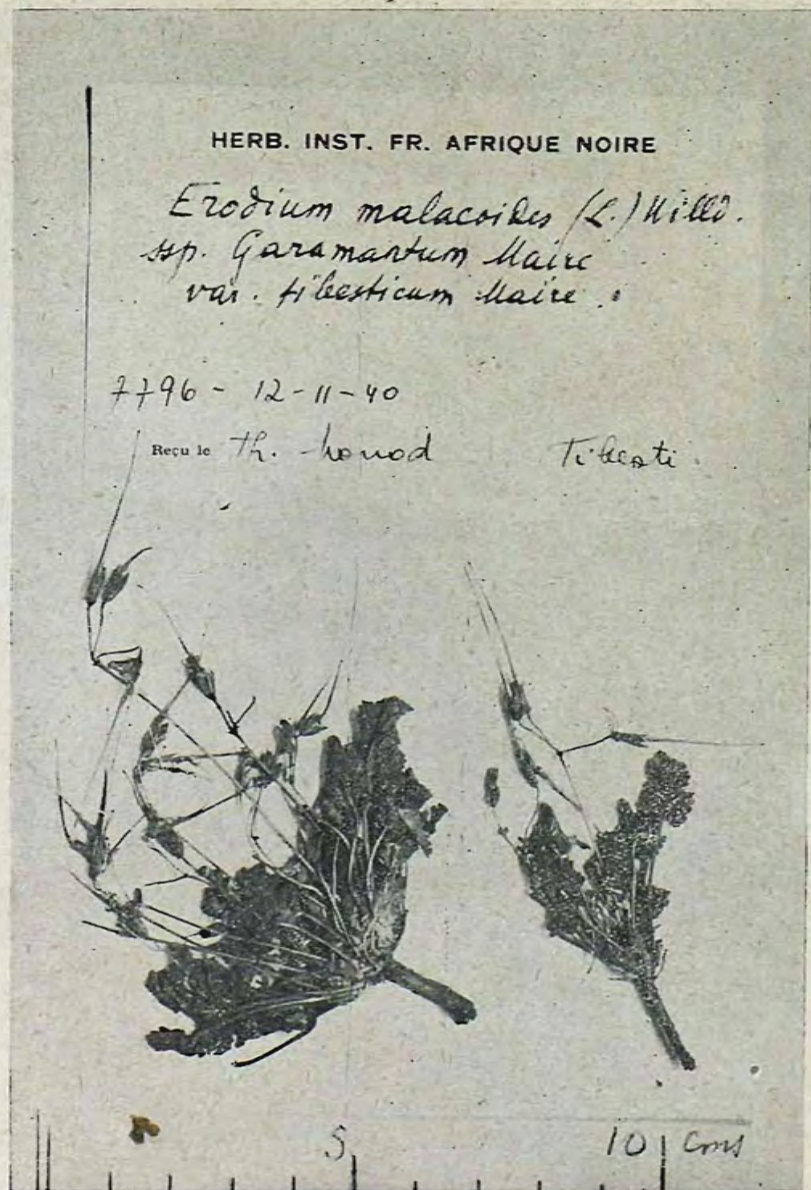 HERB. INST. FR. AFRIQUE NOIRE
Erodium malacoides (L.) Willd.
ssp. Garamantum Maire
var. tibesticum Maire.
7796 - 12-11-40
Reçu le Th. Monod Tibesti
5 10 cms